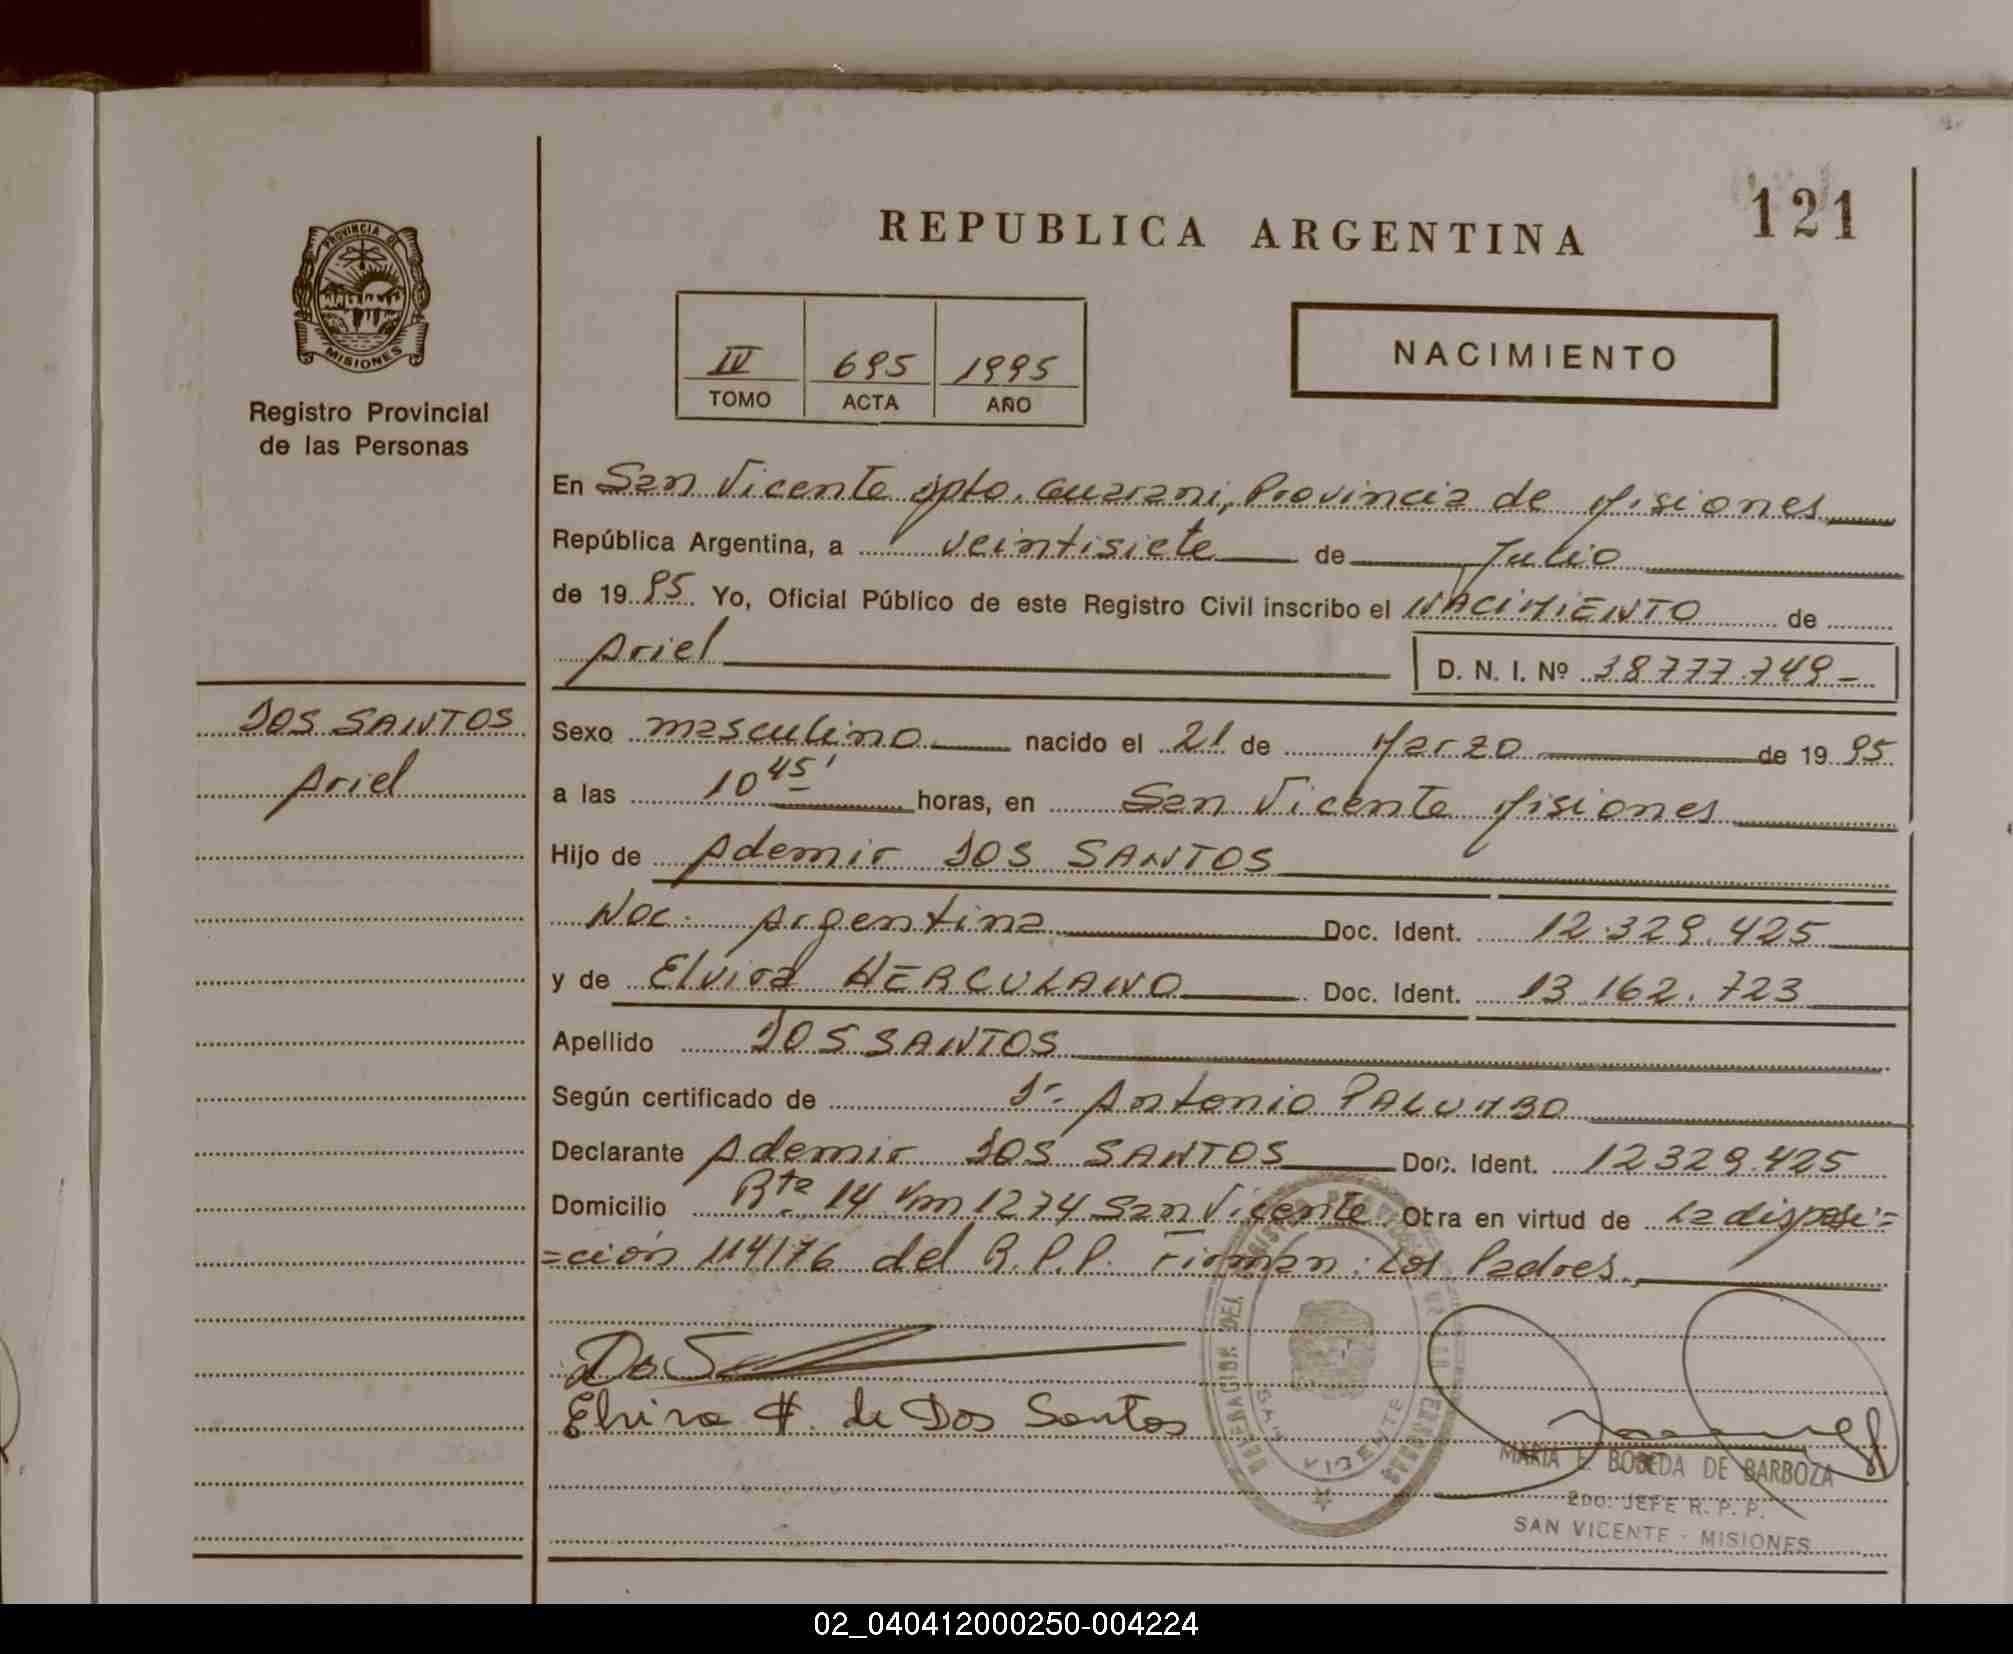 121
REPUBLICA ARGENTINA
PROVINCIA DE
MISIONES
Registro Provincial
de las Personas
IV 695 1995
TOMO ACTA AÑO
NACIMIENTO
En San Vicente Dpto. Guarani, Provincia de Misiones
República Argentina, a veintisiete de Julio
de 1995 Yo, Oficial Público de este Registro Civil inscribo el NACIMIENTO de
Ariel D. N. I. Nº 38777.749-
DOS SANTOS
Ariel
Sexo masculino nacido el 21 de Marzo de 1995
a las 10 45' horas, en San Vicente Misiones
Hijo de Ademir DOS SANTOS
Nac. Argentina Doc. Ident. 12.329.425
y de Elvira HERCULANO Doc. Ident. 13.162.723
Apellido DOS SANTOS
Según certificado de Dr. Antonio PALUMBO
Declarante Ademir DOS SANTOS Doc. Ident. 12329.425
Domicilio Rta 14 Km 1274 San Vicente Otra en virtud de La disposi=
=ción 114/76 del R.P.P. Firman: Los Padres
Elvira H. de Dos Santos
SAN VICENTE
MARIA E. BOBEDA DE BARBOZA
2DO. JEFE R. P. P.
SAN VICENTE - MISIONES
02_040412000250-004224